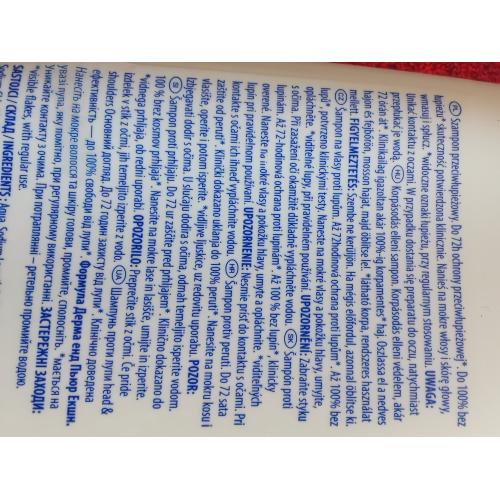 PL Szampon przeciwłupieżowy. Do 72h ochrony przeciwłupieżowej*. Do 100% bez
łupieżu* skuteczność potwierdzona klinicznie. Nanieś na mokre włosy i skórę głowy,
wmasuj i spłucz. *widoczne oznaki łupieżu, przy regularnym stosowaniu. UWAGA:
Unikać kontaktu z oczami. W przypadku dostania się preparatu do oczu, natychmiast
przepłukać je wodą. HU Korpásodás elleni sampon. Korpásodás elleni védelem, akár
72 órán át*. Klinikailag igazoltan akár 100%-ig korpamentes* haj. Oszlassa el a nedves
hajon és fejbőrön, mosson hajat, majd öblítse le. *látható korpa, rendszeres használat
mellett. FIGYELMEZTETÉS: Szembe ne kerüljön. Ha mégis előfordul, azonnal öblítse ki.
Šampon na vlasy proti lupům. Až 72hodinová ochrana proti lupům*. Až 100% bez
lupů*, potvrzeno klinickými testy. Naneste na mokré vlasy a pokožku hlavy, umyjte,
opláchněte. *viditelné lupy, při pravidelném používání. UPOZORNĚNÍ: Zabraňte styku
s očima. Při zasažení očí okamžitě důkladně vypláchněte vodou. SK Šampón proti
lupinám. Až 72-hodinová ochrana proti lupinám*. Až 100 % bez lupín* Klinicky
overené. Naneste na mokré vlasy a pokožku hlavy, umyte a opláchnite. *viditeľných
lupín pri pravidelnom používaní. UPOZORNENIE: Nesmie prísť do kontaktu s očami. Pri
kontakte s očami ich ihneď vypláchnite vodou. HR Šampon protiv peruti. Do 72 sata
zaštite od peruti*. Klinički dokazano uklanja do 100% peruti*. Nanesite na mokru kosu i
vlasište, operite i potom isperite. *vidljive ljuskice, uz redovitu uporabu. POZOR:
Izbjegavati dodir s očima. U slučaju dodira s očima, odmah temeljito isperite vodom.
Šampon proti prhljaju. Do 72 ur zaščite pred prhljajem*. Klinično dokazano do
100 % brez kosmov prhljaja*. Nanesite na mokre lase in lasišče, umijte in izperite.
*vidnega prhljaja, ob redni uporabi. OPOZORILO: Preprečite stik z očmi. Če pride
izdelek v stik z očmi, jih temeljito izperite z vodo. UA Шампунь проти лупи Head &
shoulders Основний догляд. До 72 годин захисту від лупи*. Клінічно доведена
ефективність — до 100% свободи від лупи*. Формула Дерма енд Пьюр Екшн.
Нанесіть на мокре волосся та шкіру голови, промийте, сполосніть. *мається на
увазі лупа, яку помітно, при регулярному використанні. ЗАСТЕРЕЖНІ ЗАХОДИ:
Уникайте контакту з очима. При потраплянні — ретельно промийте водою.
*visible flakes, with regular use.
SASTOJCI / СКЛАД / INGREDIENTS: Aqua, Sodium